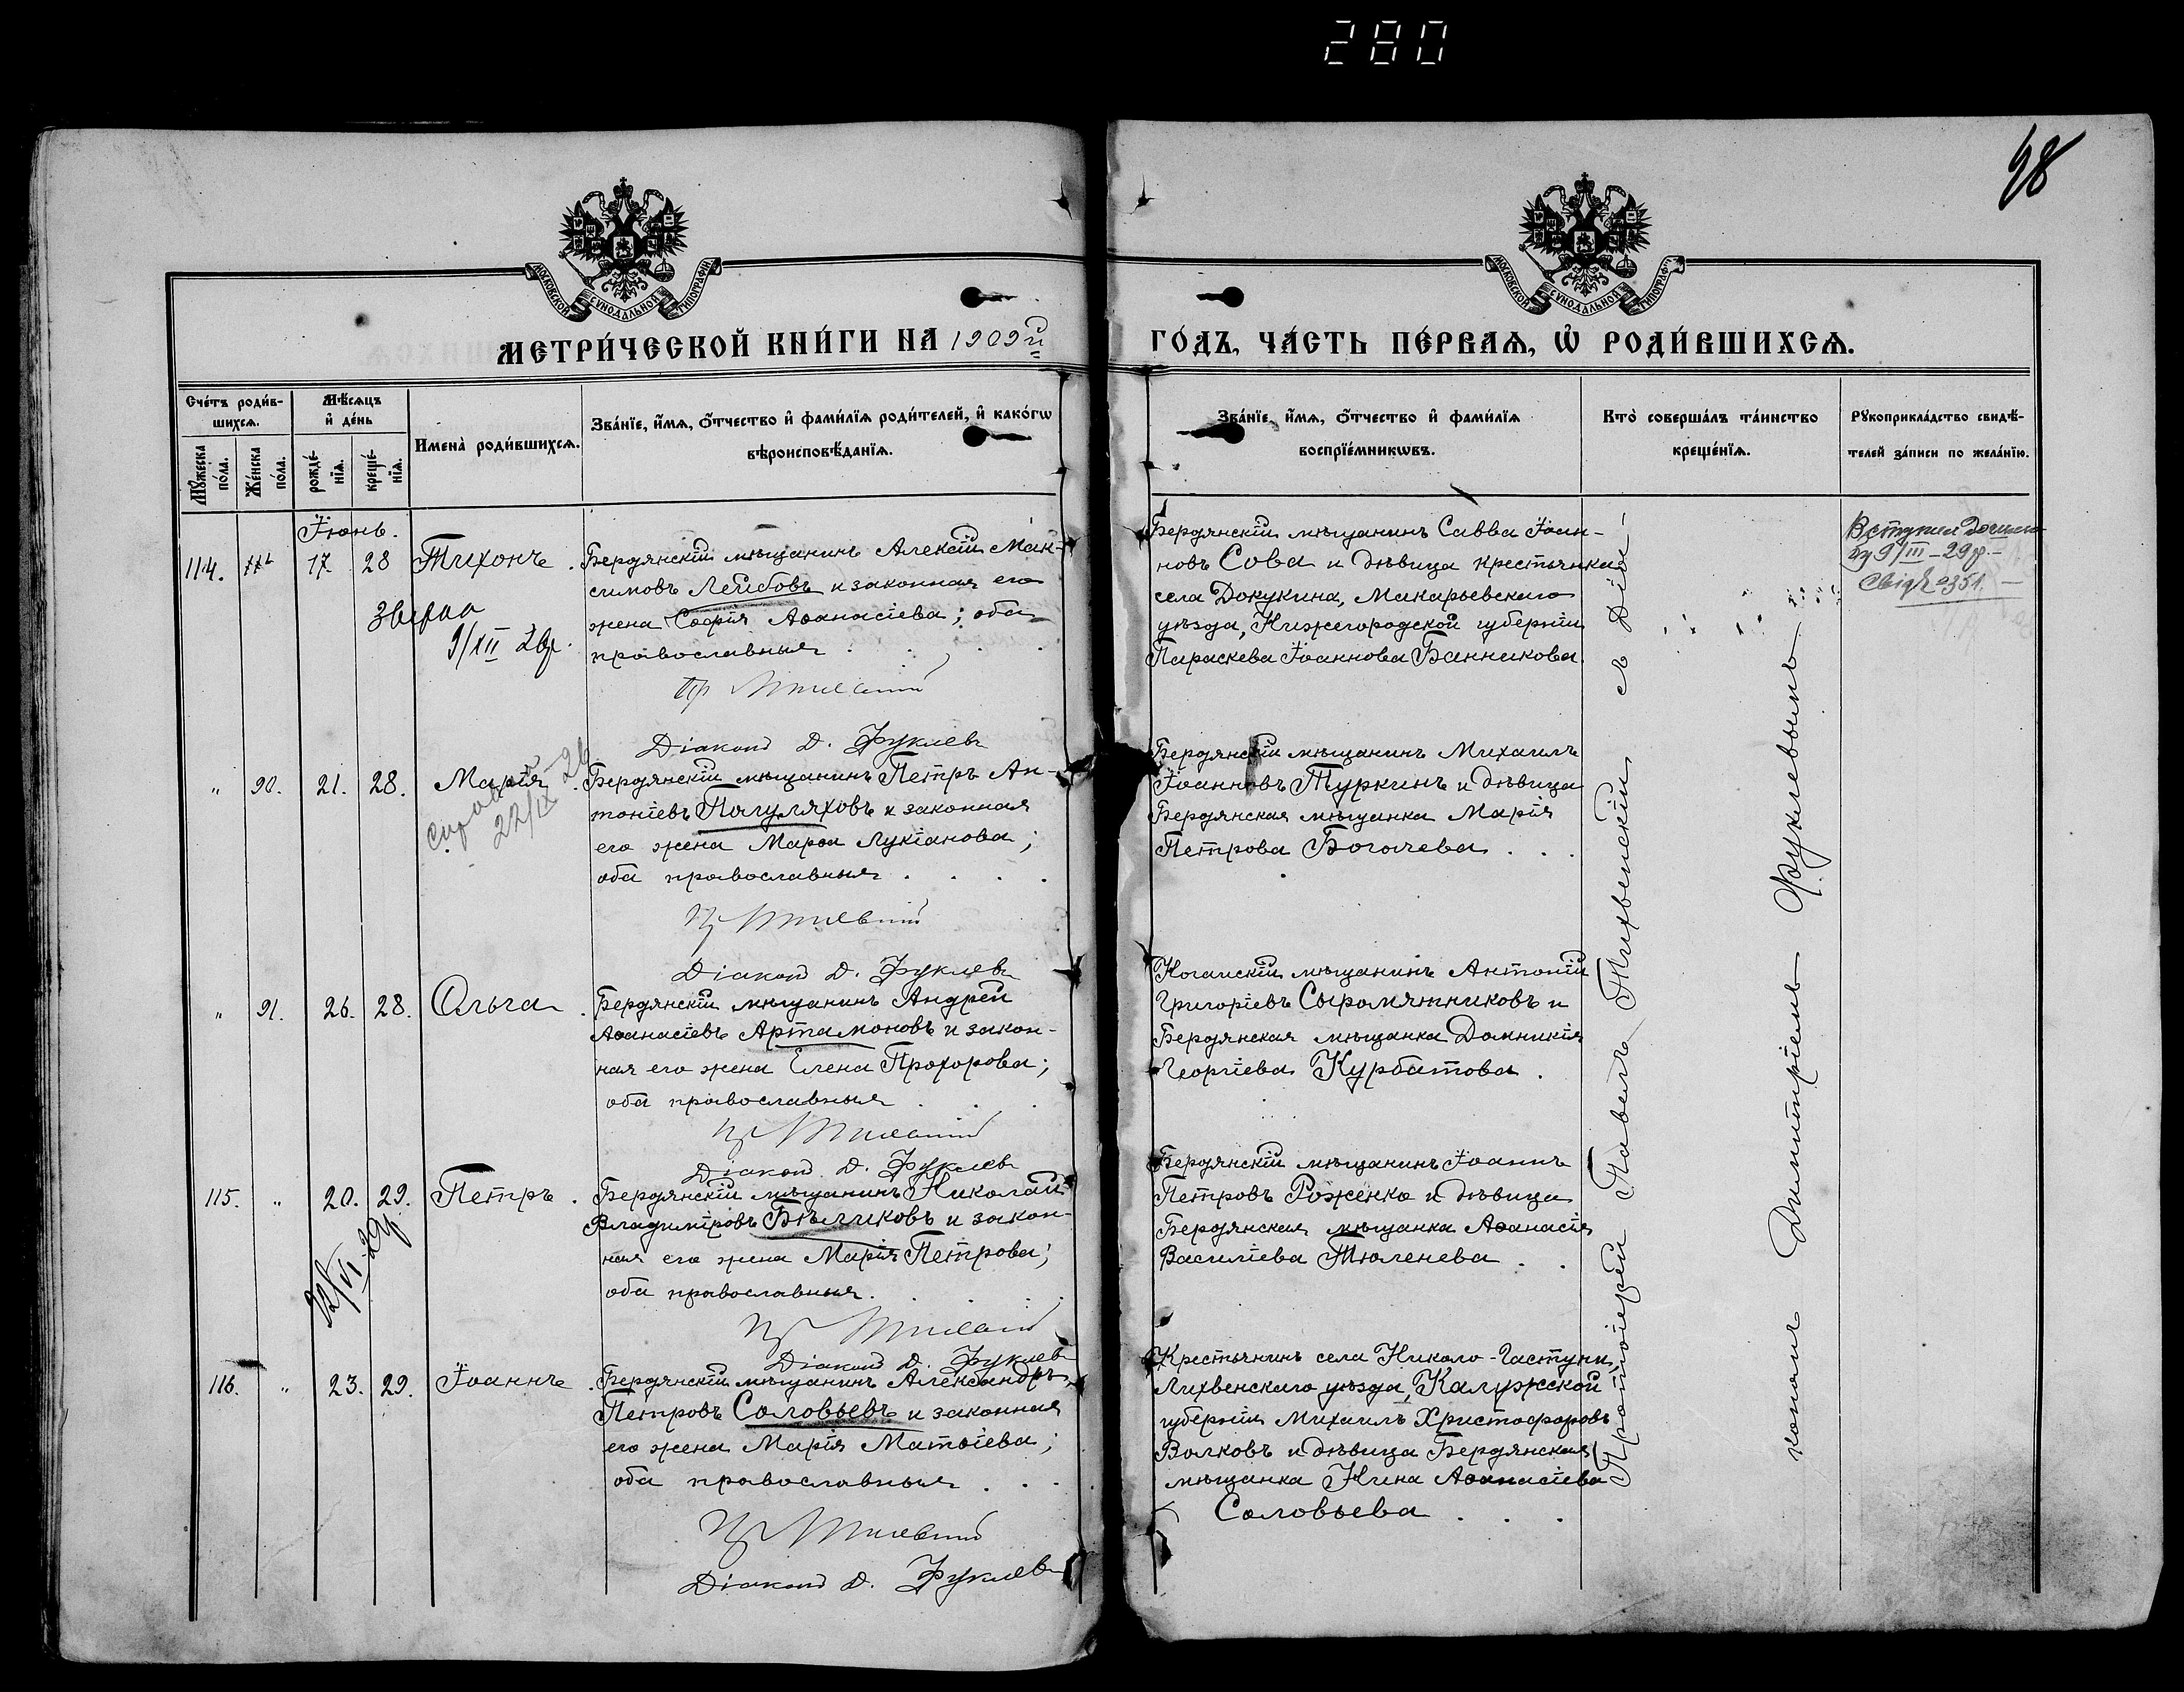 280
98
МОСКОВСКОЙ СѴНОДАЛЬНОЙ ТИПОГРАФІИ
МОСКОВСКОЙ СѴНОДАЛЬНОЙ ТИПОГРАФІИ
МЕТРИ́ЧЕСКОЙ КНИ́ГИ НА 1909й
ГО́ДЪ, ЧА́СТЬ ПЕ́РВАѦ, Ѿ РОДИ́ВШИХСѦ.
Сче́тъ роди́в-
шихсѧ.
Мѣ́сѧцъ
и҆ де́нь
Мꙋ́жеска
по́ла.
Же́нска
по́ла.
рожде́-
нїѧ.
креще́-
нїѧ.
Имена̀ роди́вшихсѧ.
Зва́нїе, и҆́мѧ, ѻ҆́тчество и҆ фами́лїѧ роди́телей, и҆ како́гѡ
вѣроисповѣ́данїѧ.
Зва́нїе, и҆́мѧ, ѻ҆́тчество и҆ фами́лїѧ
воспрїе́мникѡвъ.
Кто̀ соверша́лъ та́инство
креще́нїѧ.
Рꙋкоприкла́дство свидѣ́-
телей за́писи по жела́нїю.
Іюнь.
114.
17.
28
Тихонъ.
Бердянскій мѣщанинъ Алексій Мак-
симовъ Лейбовъ и законная его
жена Софія Аѳанасіева; оба
православныя
Діаконъ Д. Фуклевъ
Звірка
9/XII 26р.
Бердянскій мѣщанинъ Савва Іоан-
новъ Сова и дѣвица крестьянка
села Докукина, Макарьевскаго
уѣзда, Нижегородской губерніи
Параскева Іоаннова Банникова.
9/III-29р.-
2351.
"
90.
21.
28.
Марія.
22/IX 26
Бердянскій мѣщанинъ Петръ Ан-
тоніевъ Полуляховъ и законная
его жена Марѳа Лукіанова;
оба православныя.
Діаконъ Д. Фуклевъ
Бердянскій мѣщанинъ Михаилъ
Іоанновъ Туркинъ и дѣвица
Бердянская мѣщанка Марія
Петрова Богачева.
"
91.
26.
28.
Ольга.
Бердянскій мѣщанинъ Андрей
Аѳанасіевъ Артамоновъ и закон-
ная его жена Елена Прохорова;
оба православныя
Діаконъ Д. Фуклевъ
Ногайскій мѣщанинъ Антоній
Григоріевъ Сыромятниковъ и
Бердянская мѣщанка Домникія
Георгіева Курбатова.
115.
"
20.
29.
Петръ.
Бердянскій мѣщанинъ Николай
Владиміровъ Бѣликовъ и закон-
ная его жена Марія Петрова;
оба православныя.
Діаконъ Д. Фуклевъ
Бердянскій мѣщанинъ Іоаннъ
Петровъ Роженко и дѣвица
Бердянская мѣщанка Аѳанасія
Василіева Тюленева.
116.
"
23.
29.
Іоаннъ.
Бердянскій мѣщанинъ Александръ
Петровъ Соловьевъ и законная
его жена Марія Матѳіева;
оба православныя.
Діаконъ Д. Фуклевъ
Крестьянинъ села Николо-Гастуни,
Лихвенскаго уѣзда, Калужской
губерніи Михаилъ Христофоровъ
Волковъ и дѣвица Бердянская
мѣщанка Нина Аѳанасіева
Соловьева.
Протоіерей Павелъ Тихвенскій съ Діа-
кономъ Димитріемъ Фуклевымъ